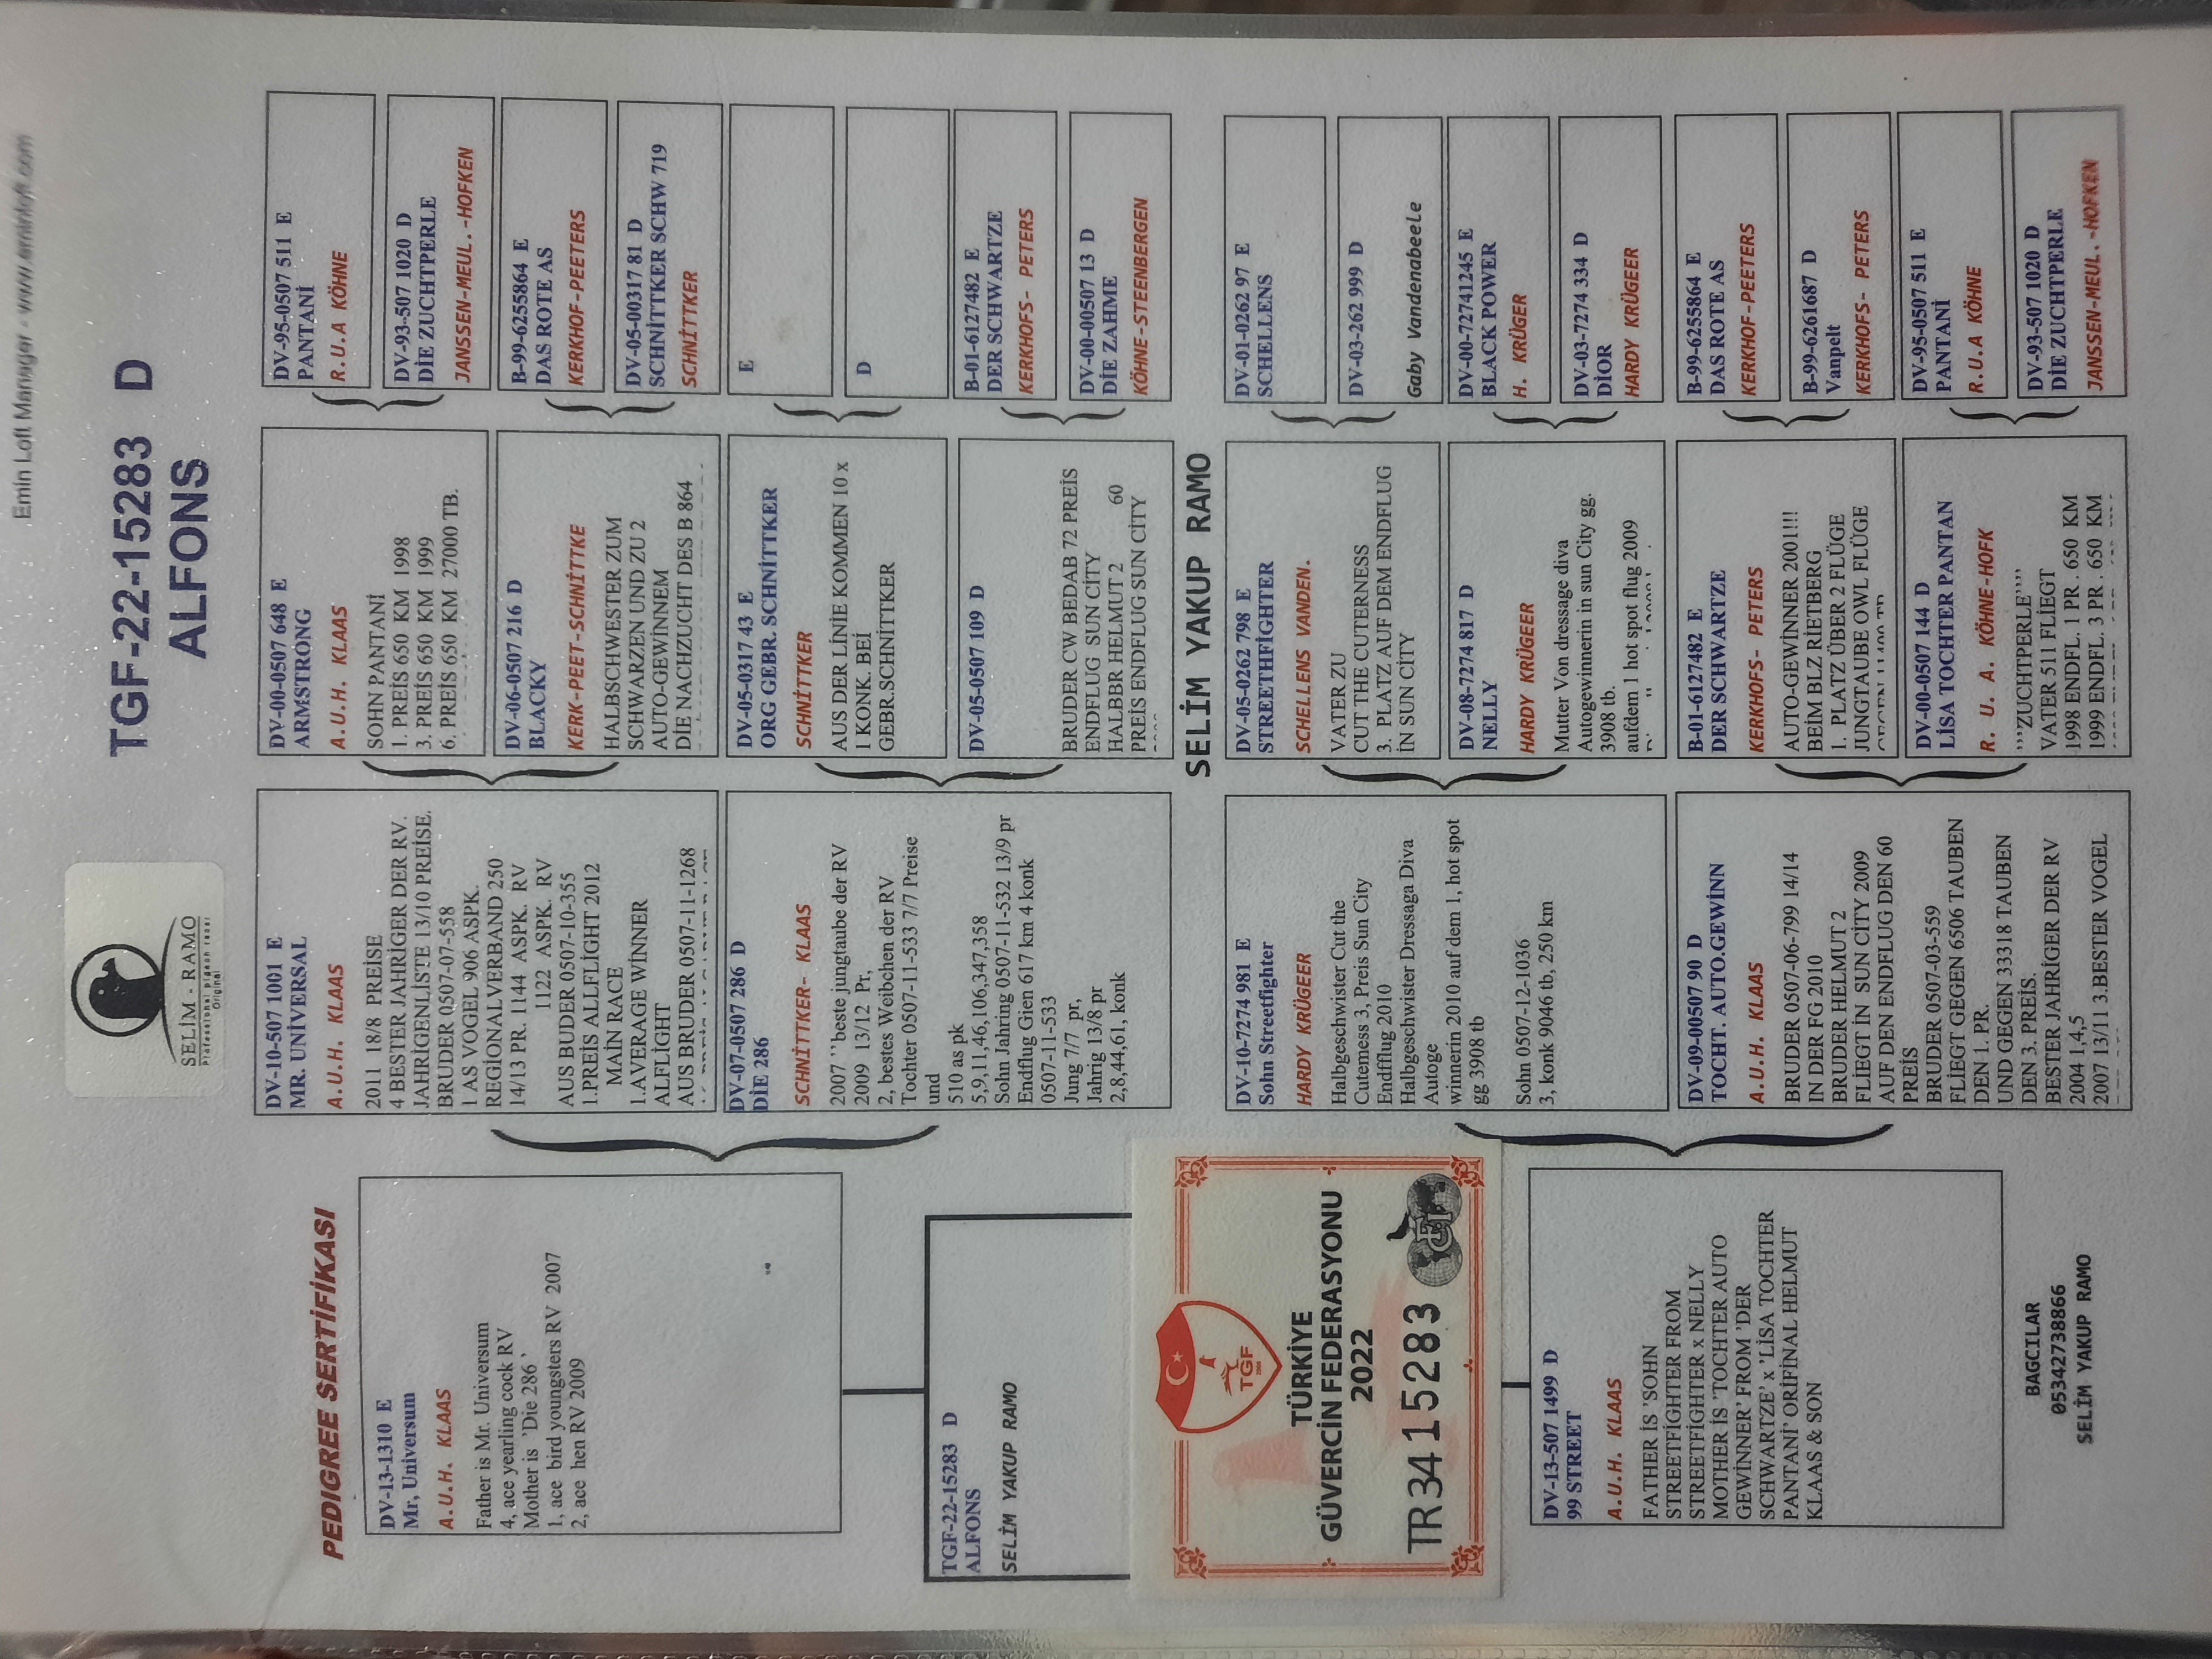 Emin Loft Manager - www.eminloft.com
TGF-22-15283 D
ALFONS
SELİM - RAMO
Professional pigeon racer
Original
PEDIGREE SERTİFİKASI
DV-13-1310 E
Mr, Universum
A.U.H. KLAAS
Father is Mr. Universum
4, ace yearling cock RV
Mother is 'Die 286 '
1, ace bird youngsters RV 2007
2, ace hen RV 2009
TGF-22-15283 D
ALFONS
SELİM YAKUP RAMO
TGF
TÜRKİYE
GÜVERCİN FEDERASYONU
2022
TR3415283
FCI
DV-13-507 1499 D
99 STREET
A.U.H. KLAAS
FATHER İS 'SOHN
STREETFİGHTER FROM
STREETFİGHTER x NELLY
MOTHER İS 'TOCHTER AUTO
GEWİNNER' FROM 'DER
SCHWARTZE' x 'LİSA TOCHTER
PANTANİ' ORİFİNAL HELMUT
KLAAS & SON
BAGCILAR
05342738866
SELİM YAKUP RAMO
DV-10-507 1001 E
MR. UNİVERSAL
A.U.H. KLAAS
2011 18/8 PREİSE
4 BESTER JAHRİGER DER RV.
JAHRİGENLİSTE 13/10 PREİSE.
BRUDER 0507-07-558
1 AS VOGEL 906 ASPK.
REGİONALVERBAND 250
14/13 PR. 1144 ASPK. RV
1122 ASPK. RV
AUS BUDER 0507-10-355
1.PREİS ALLFLİGHT 2012
MAIN RACE
1.AVERAGE WİNNER
ALFLİGHT
AUS BRUDER 0507-11-1268
DV-07-0507 286 D
DİE 286
SCHNİTTKER- KLAAS
2007 ''beste jungtaube der RV
2009 13/12 Pr,
2, bestes Weibchen der RV
Tochter 0507-11-533 7/7 Preise
und
510 as pk
5,9,11,46,106,347,358
Sohn Jahring 0507-11-532 13/9 pr
Endflug Gien 617 km 4 konk
0507-11-533
Jung 7/7 pr,
Jahrig 13/8 pr
2,8,44,61, konk
SELİM YAKUP RAMO
DV-10-7274 981 E
Sohn Streetfighter
HARDY KRÜGEER
Halbgeschwister Cut the
Cuterness 3, Preis Sun City
Endflug 2010
Halbgeschwister Dressaga Diva
Autoge
winnerin 2010 auf dem 1, hot spot
gg 3908 tb
Sohn 0507-12-1036
3, konk 9046 tb, 250 km
DV-09-00507 90 D
TOCHT. AUTO.GEWİNN
A.U.H. KLAAS
BRUDER 0507-06-799 14/14
IN DER FG 2010
BRUDER HELMUT 2
FLİEGT İN SUN CİTY 2009
AUF DEN ENDFLUG DEN 60
PREİS
BRUDER 0507-03-559
FLİEGT GEGEN 6506 TAUBEN
DEN 1. PR.
UND GEGEN 33318 TAUBEN
DEN 3. PREİS.
BESTER JAHRİGER DER RV
2004 1,4,5
2007 13/11 3.BESTER VOGEL
DV-00-0507 648 E
ARMSTRONG
A.U.H. KLAAS
SOHN PANTANİ
1. PREİS 650 KM 1998
3. PREİS 650 KM 1999
6. PREİS 650 KM 27000 TB.
DV-06-0507 216 D
BLACKY
KERK-PEET-SCHNİTTKE
HALBSCHWESTER ZUM
SCHWARZEN UND ZU 2
AUTO-GEWİNNEM
DİE NACHZUCHT DES B 864
DV-05-0317 43 E
ORG GEBR. SCHNİTTKER
SCHNİTTKER
AUS DER LİNİE KOMMEN 10 x
1 KONK. BEİ
GEBR.SCHNİTTKER
DV-05-0507 109 D
BRUDER CW BEDAB 72 PREİS
ENDFLUG SUN CİTY
HALBBR HELMUT 2 60
PREİS ENDFLUG SUN CİTY
DV-05-0262 798 E
STREETHFİGHTER
SCHELLENS VANDEN.
VATER ZU
CUT THE CUTERNESS
3. PLATZ AUF DEM ENDFLUG
İN SUN CİTY
DV-08-7274 817 D
NELLY
HARDY KRÜGEER
Mutter Von dressage diva
Autogewinnerin in sun City gg.
3908 tb.
aufdem 1 hot spot flug 2009
B-01-6127482 E
DER SCHWARTZE
KERKHOFS- PETERS
AUTO-GEWİNNER 2001!!!
BEİM BLZ RİETBERG
1. PLATZ ÜBER 2 FLÜGE
JUNGTAUBE OWL FLÜGE
DV-00-0507 144 D
LİSA TOCHTER PANTAN
R. U. A. KÖHNE-HOFK
''''ZUCHTPERLE''''
VATER 511 FLİEGT
1998 ENDFL. 1 PR . 650 KM
1999 ENDFL. 3 PR . 650 KM
DV-95-0507 511 E
PANTANİ
R.U.A KÖHNE
DV-93-507 1020 D
DİE ZUCHTPERLE
JANSSEN-MEUL.-HOFKEN
B-99-6255864 E
DAS ROTE AS
KERKHOF-PEETERS
DV-05-00317 81 D
SCHNİTTKER SCHW 719
SCHNİTTKER
E
D
B-01-6127482 E
DER SCHWARTZE
KERKHOFS- PETERS
DV-00-00507 13 D
DİE ZAHME
KÖHNE-STEENBERGEN
DV-01-0262 97 E
SCHELLENS
DV-03-262 999 D
Gaby Vandenabeele
DV-00-72741245 E
BLACK POWER
H. KRÜGER
DV-03-7274 334 D
DİOR
HARDY KRÜGEER
B-99-6255864 E
DAS ROTE AS
KERKHOF-PEETERS
B-99-6261687 D
Vanpelt
KERKHOFS- PETERS
DV-95-0507 511 E
PANTANİ
R.U.A KÖHNE
DV-93-507 1020 D
DİE ZUCHTPERLE
JANSSEN-MEUL.-HOFKEN